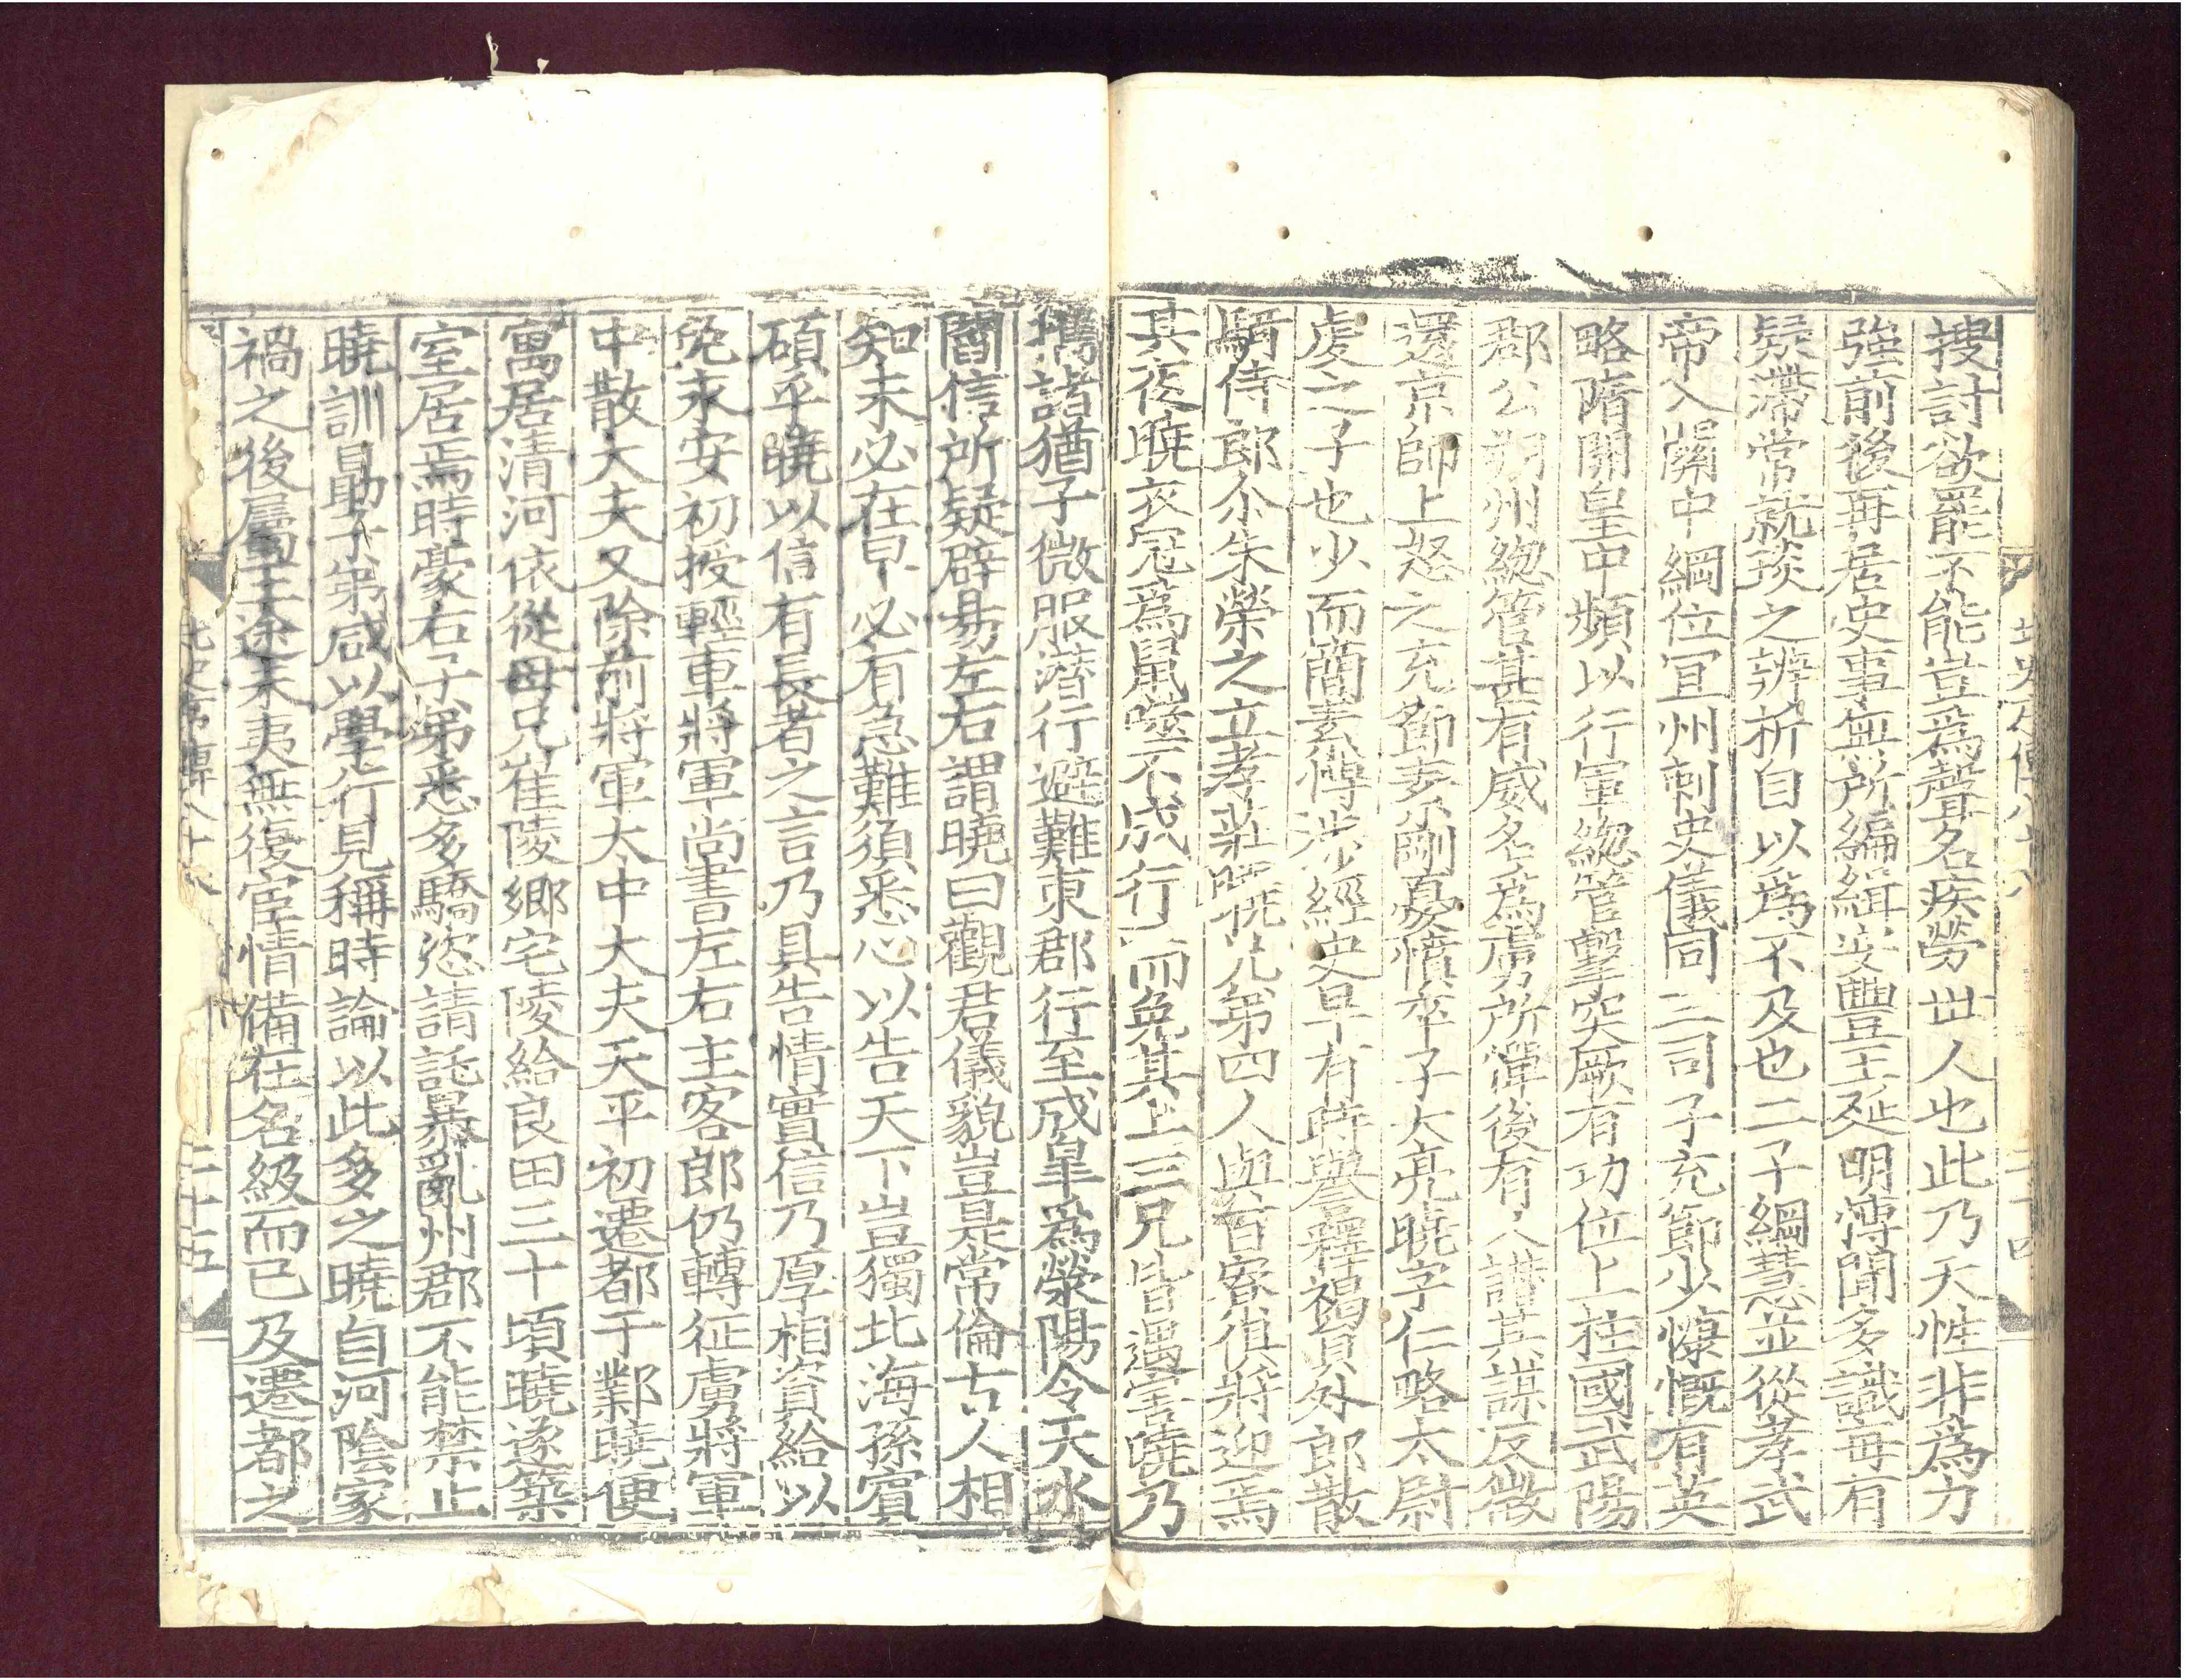 搜討欲罷不能豈爲聲名疾勞丗人也此乃天性非爲力
強前後再居史事無所編緝安豐王延明博聞多識每有
疑滯常就琰之辨析自以爲不及也二子綱慧並從孝武
帝入關中綱位宜州刺史儀同三司子充節少慷慨有英
略隋開皇中頻以行軍緫管擊突厥有功位上柱國武陽
郡公朔州緫管甚有威名爲虜所憚後有人譖其謀反徵
還京師上怒之充節素剛憂憤卒子大亮曉字仁略太尉
虔之子也少而簡素博涉經史早有時譽釋褐員外郎散
騎侍郎尒朱榮之立孝莊曉兄弟四人與百寮俱將迎焉
其夜曉衣冠爲鼠噬不成行而免其上三兄皆遇害曉乃
攜諸猶子微服潜行避難東郡行至成皐爲滎陽令天水
閻信所疑辟易左右謂曉曰觀君儀貌豈是常倫古人相
知未必在早必有急難須悉心以告天下豈獨北海孫賓
碩乎曉以信有長者之言乃具告情實信乃厚相資給以
免永安初授輕車將軍尚書左右主客郎仍轉征虜將軍
中散大夫又除前將軍太中大夫天平初遷都于鄴曉便
寓居清河依從母兄崔㥄鄉宅㥄給良田三十頃曉遂築
室居焉時豪右子弟悉多驕恣請託暴亂州郡不能禁止
曉訓勗子弟咸以學行見稱時論以此多之曉自河陰家
禍之後屬王途未夷無復宦情備在名級而已及遷都之
北史列傳八十八
二十四
北史列傳八十八
二十五